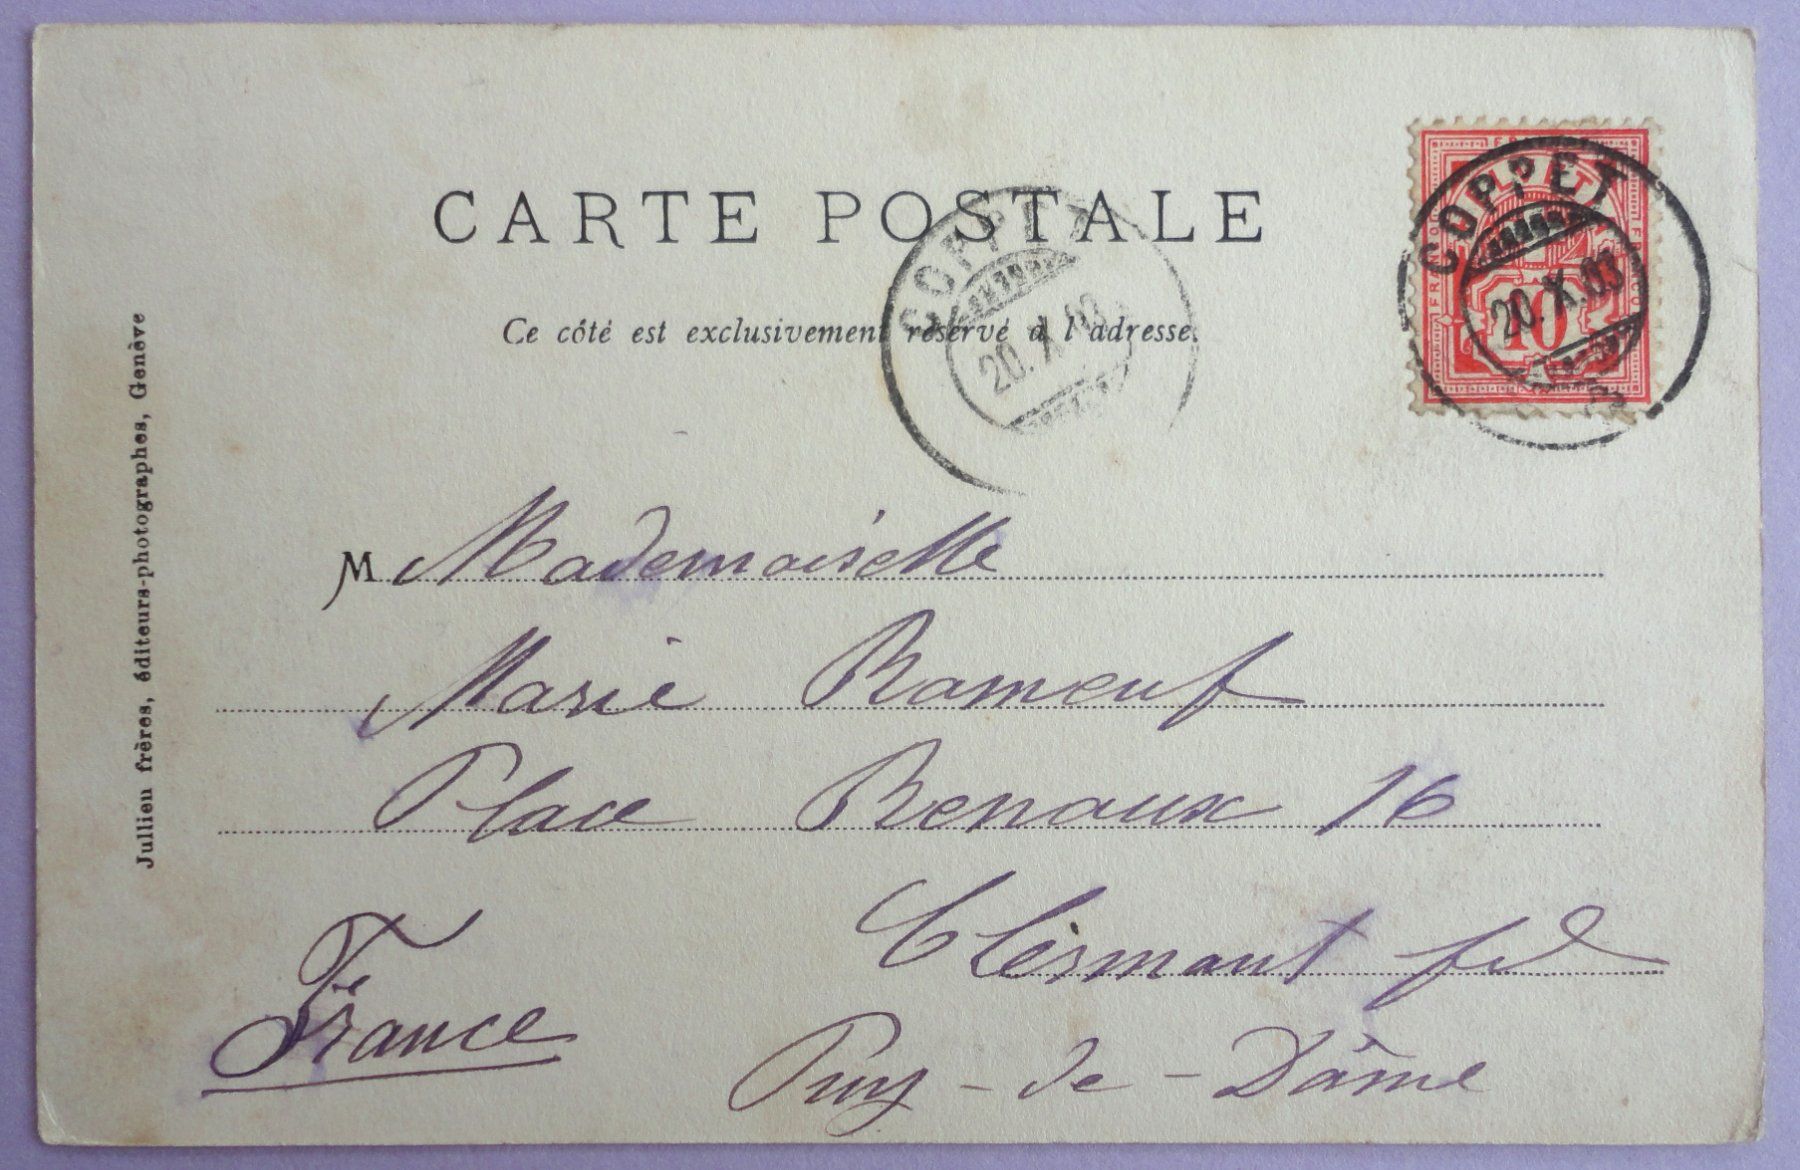 CARTE POSTALE
Ce côté est exclusivement réservé à l'adresse.
COPPET
20.X.03
COPPET
20.X.03
10
M Mademoiselle
Marie Rameuf
Place Renaux 16
Clermont fd
Puy-de-Dôme
France
Jullien frères, éditeurs-photographes, Genève